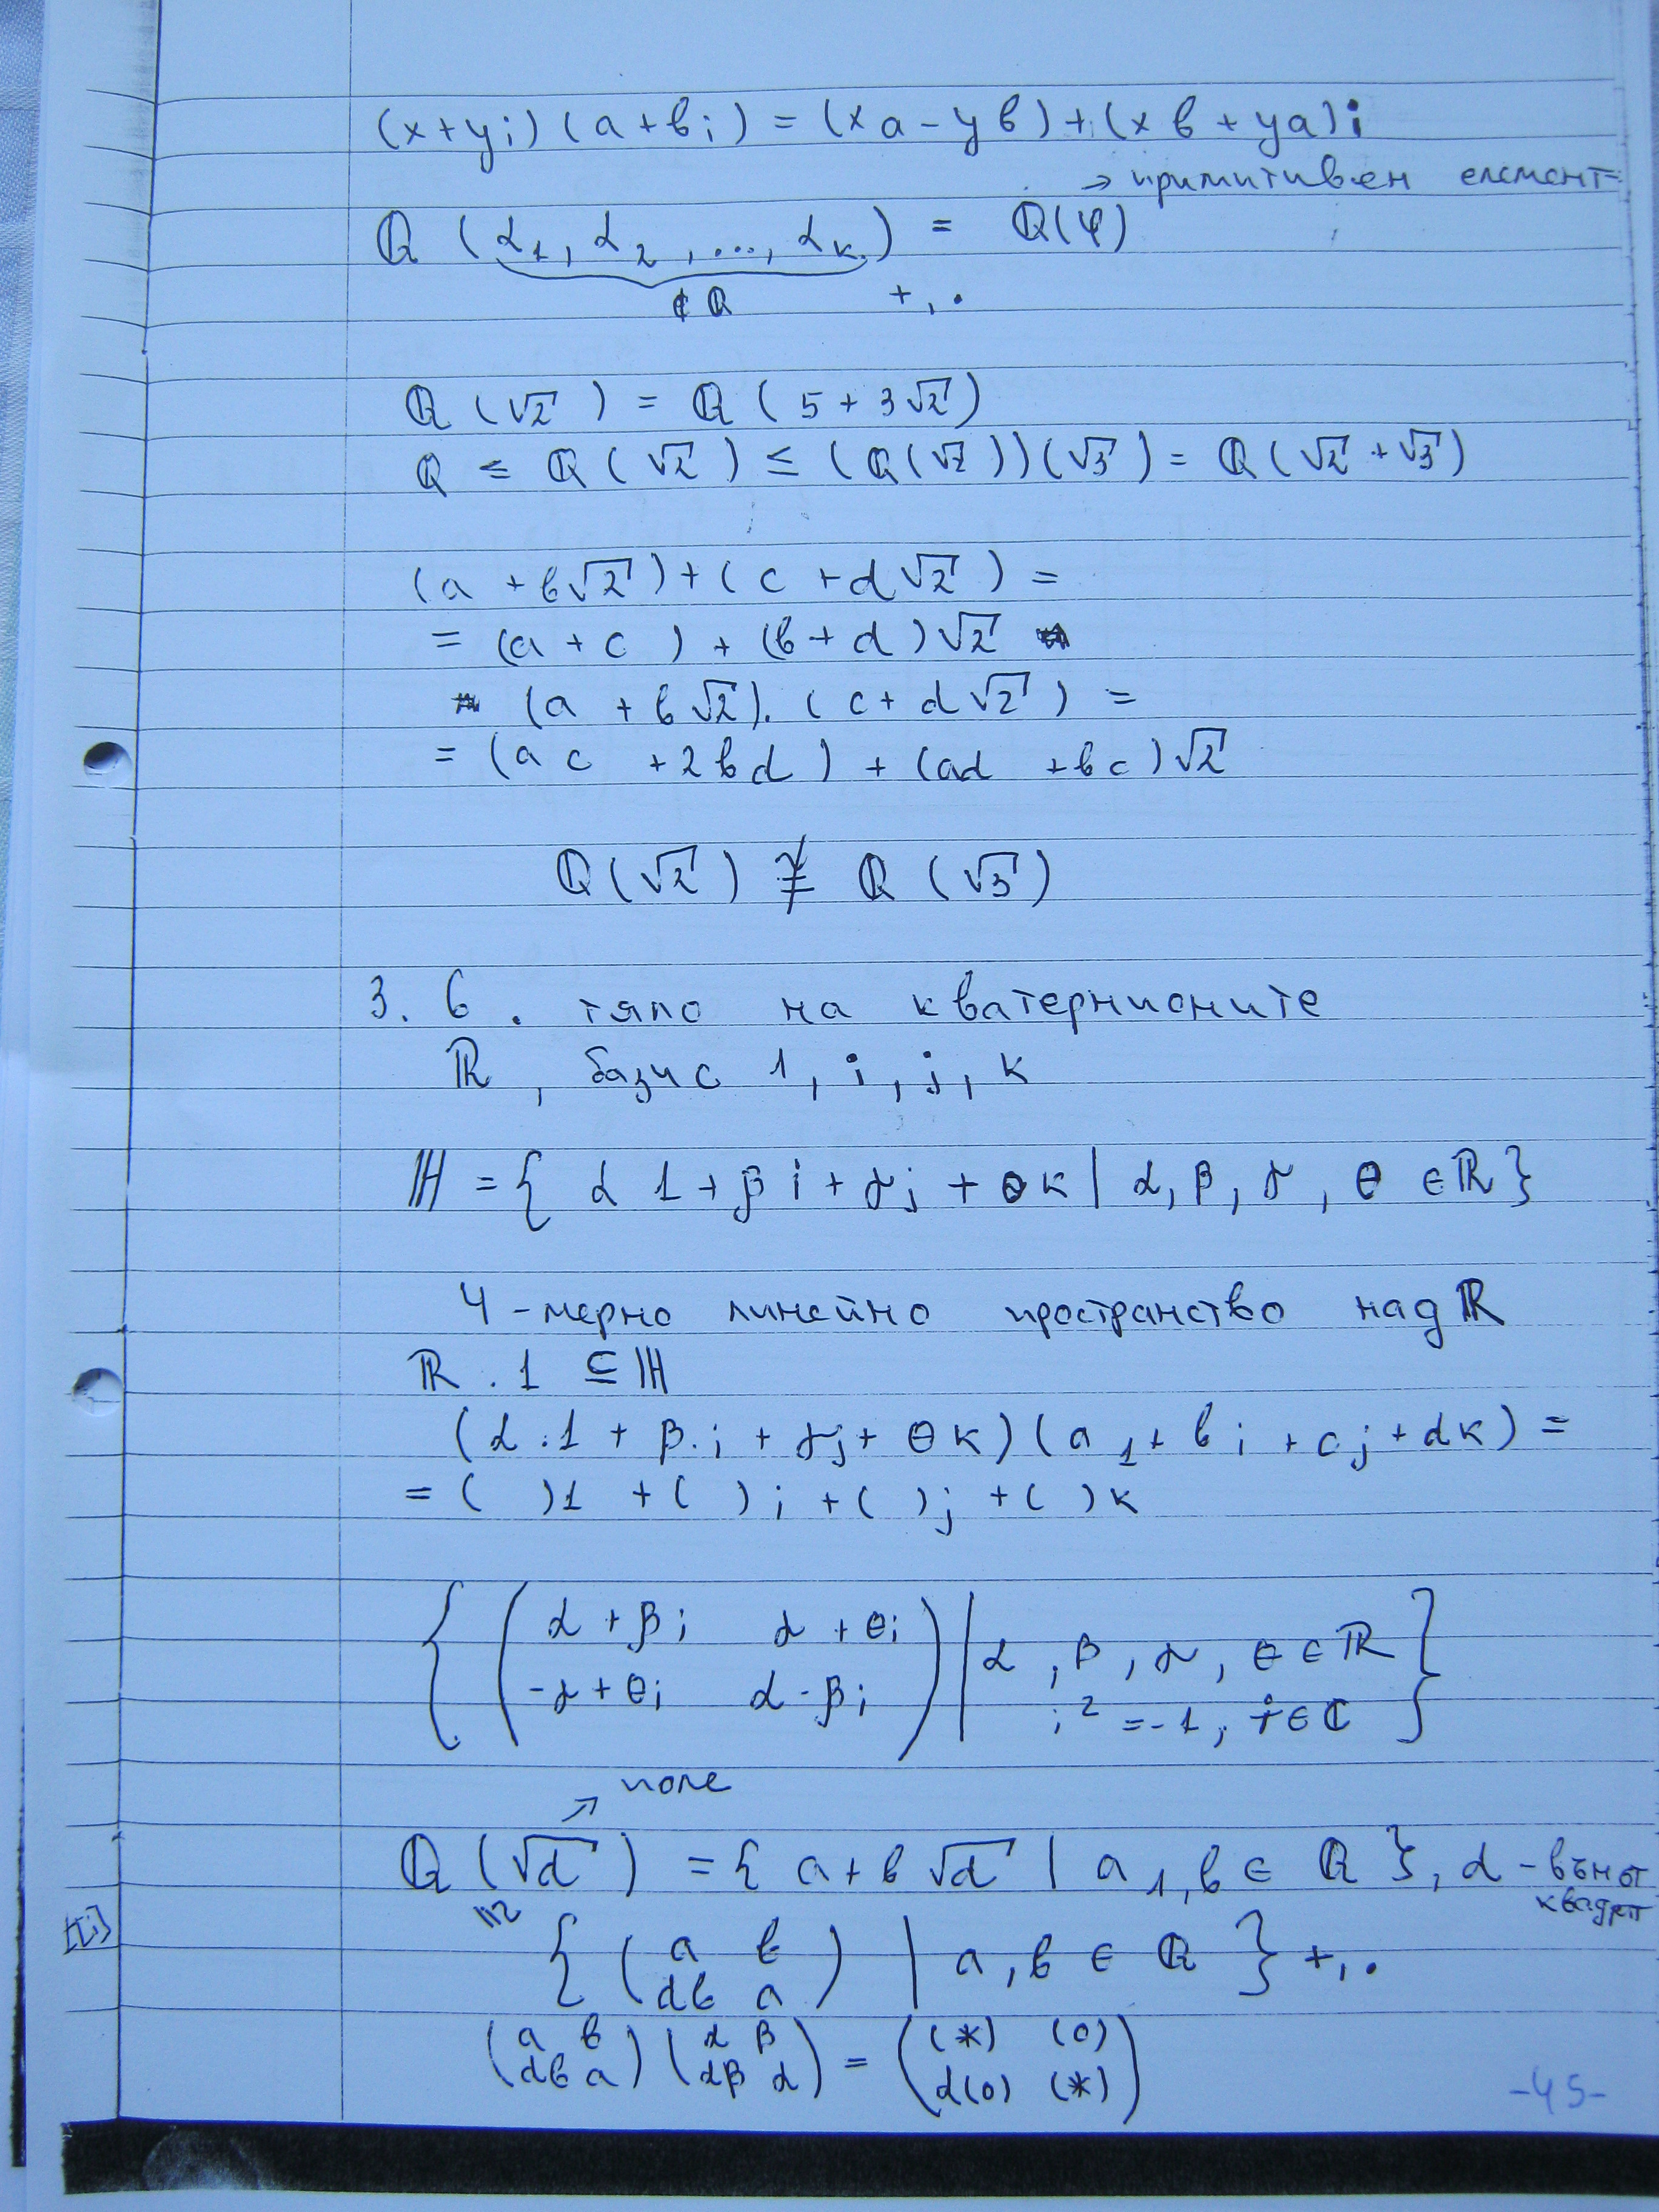 (x+yi)(a+bi) = (xa-yb)+(xb+ya)i
→ примитивен елемент
ℚ (α₁, α₂, ..., αₖ) = ℚ(φ)
∉ ℚ +, .
ℚ (√2) = ℚ (5 + 3√2)
ℚ ≤ ℚ (√2) ≤ (ℚ(√2))(√3) = ℚ(√2 + √3)
(a + b√2)+(c + d√2) =
= (a + c) + (b + d)√2
(a + b√2).(c + d√2) =
= (ac + 2bd) + (ad + bc)√2
ℚ(√2) ≇ ℚ(√3)
3. 6. тяло на кватернионите
ℝ, базис 1, i, j, k
ℍ = { α 1 + β i + γj + θk | α, β, γ, θ ∈ ℝ }
4-мерно линейно пространство над ℝ
ℝ . 1 ⊆ ℍ
(α.1 + β.i + γj + θk)(a 1 + b i + cj + dk) =
= ( )1 + ( )i + ( )j + ( )k
{ ( α + βi γ + θi ) | α, β, γ, θ ∈ ℝ }
-γ + θi α - βi i² = -1, i ∈ ℂ
↗ поле
ℚ (√d) = { a + b√d | a, b ∈ ℚ }, d -
≅
{ ( a b ) | a, b ∈ ℚ } +, .
db a
( a b ) ( α β ) = ( (*) (o) )
db a dβ α d(o) (*)
-45-